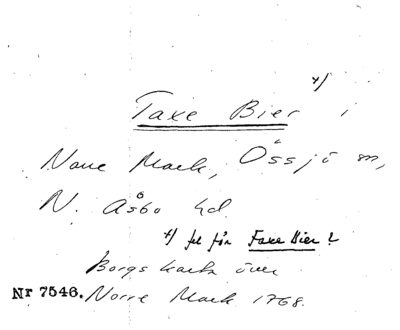 x)
Taxe Bier i
Norre Mark, Össjö sn,
N. Åsbo hd.
x) fel för Faxe Bier?
Borgs karta över
Nr 7546. Norre Mark 1768.